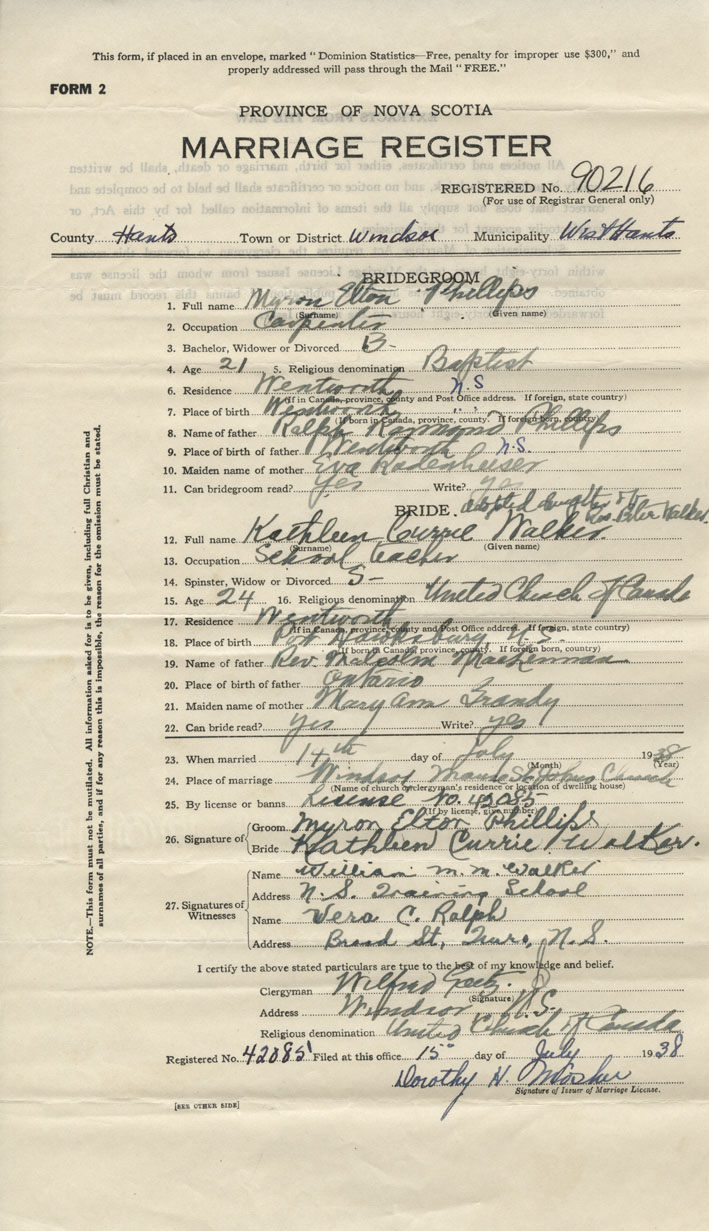 This form, if placed in an envelope, marked "Dominion Statistics—Free, penalty for improper use $300," and
properly addressed will pass through the Mail "FREE."
FORM 2
PROVINCE OF NOVA SCOTIA
MARRIAGE REGISTER
REGISTERED No. 90216
(For use of Registrar General only)
County Hants Town or District Windsor Municipality West Hants
BRIDEGROOM
1. Full name Myron Elton Phillips
(Surname) (Given name)
2. Occupation Carpenter
3. Bachelor, Widower or Divorced B-
4. Age 21 5. Religious denomination Baptist
6. Residence Wentworth N.S
(If in Canada, province, county and Post Office address. If foreign, state country)
7. Place of birth Wentworth
(If born in Canada, province, county. If foreign born, country)
8. Name of father Ralph Raymond Phillips
9. Place of birth of father Wentworth N.S.
10. Maiden name of mother Eva
11. Can bridegroom read? Yes Write? yes
BRIDE. adopted daughter of
Walker.
12. Full name Kathleen Currie Walker
(Surname) (Given name)
13. Occupation School teacher
14. Spinster, Widow or Divorced S-
15. Age 24 16. Religious denomination United Church of Canada
17. Residence Wentworth
(If in Canada, province, county and Post Office address. If foreign, state country)
18. Place of birth Port Hawksbury
(If born in Canada, province, county. If foreign born, country)
19. Name of father Rev. Malcolm
20. Place of birth of father Ontario
21. Maiden name of mother Mary Ann Grandy
22. Can bride read? yes Write? yes
23. When married 14th day of July 1938
(Month) (Year)
24. Place of marriage Windsor Manse St. Johns Church
(Name of church or clergyman's residence or location of dwelling house)
25. By license or banns License No. 42085
(If by license, give number)
26. Signature of
Groom Myron Elton Phillips
Bride Kathleen Currie Walker.
27. Signatures of Witnesses
Name William M. M. Walker
Address N.S. Training School
Name Vera C. Ralph
Address Broad St, Truro, N.S.
I certify the above stated particulars are true to the best of my knowledge and belief.
Clergyman Wilfred
(Signature)
Address Windsor N.S.
Religious denomination United Church of Canada
Registered No. 42085 Filed at this office 15 day of July 1938
Dorothy H. Mosher
Signature of Issuer of Marriage License.
[SEE OTHER SIDE]
NOTE.—This form must not be mutilated. All information asked for is to be given, including full Christian and
surnames of all parties, and if for any reason this is impossible, the reason for the omission must be stated.